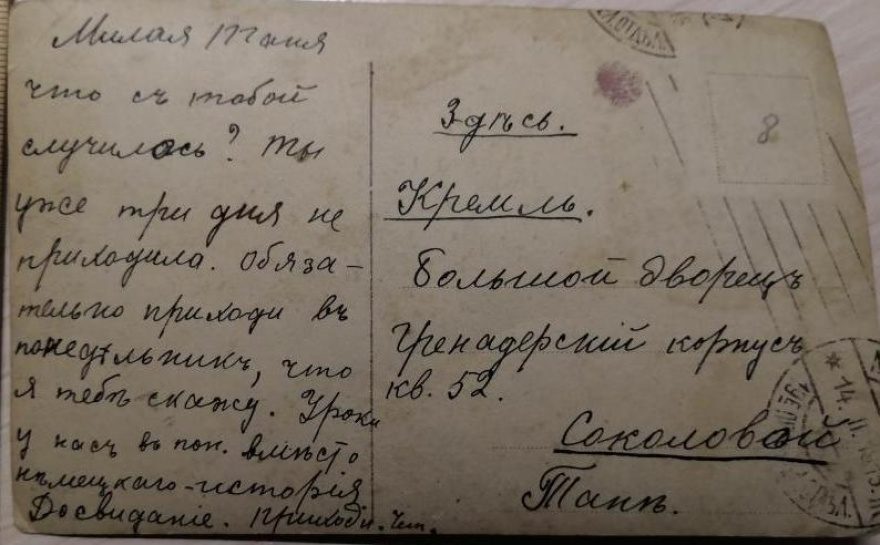 Милая Таня
что съ тобой
случилось? Ты
уже три дня не
приходила. Обяза-
тельно приходи въ
понедѣльникъ, что
я тебѣ скажу. Уроки
у насъ въ пон. вмѣсто
нѣмецкаго-исторія
Досвиданіе. Приходи.
Здѣсь.
Кремль.
Большой дворецъ
Гренадерскій корпусъ
кв. 52.
Соколовой
Танѣ.
8